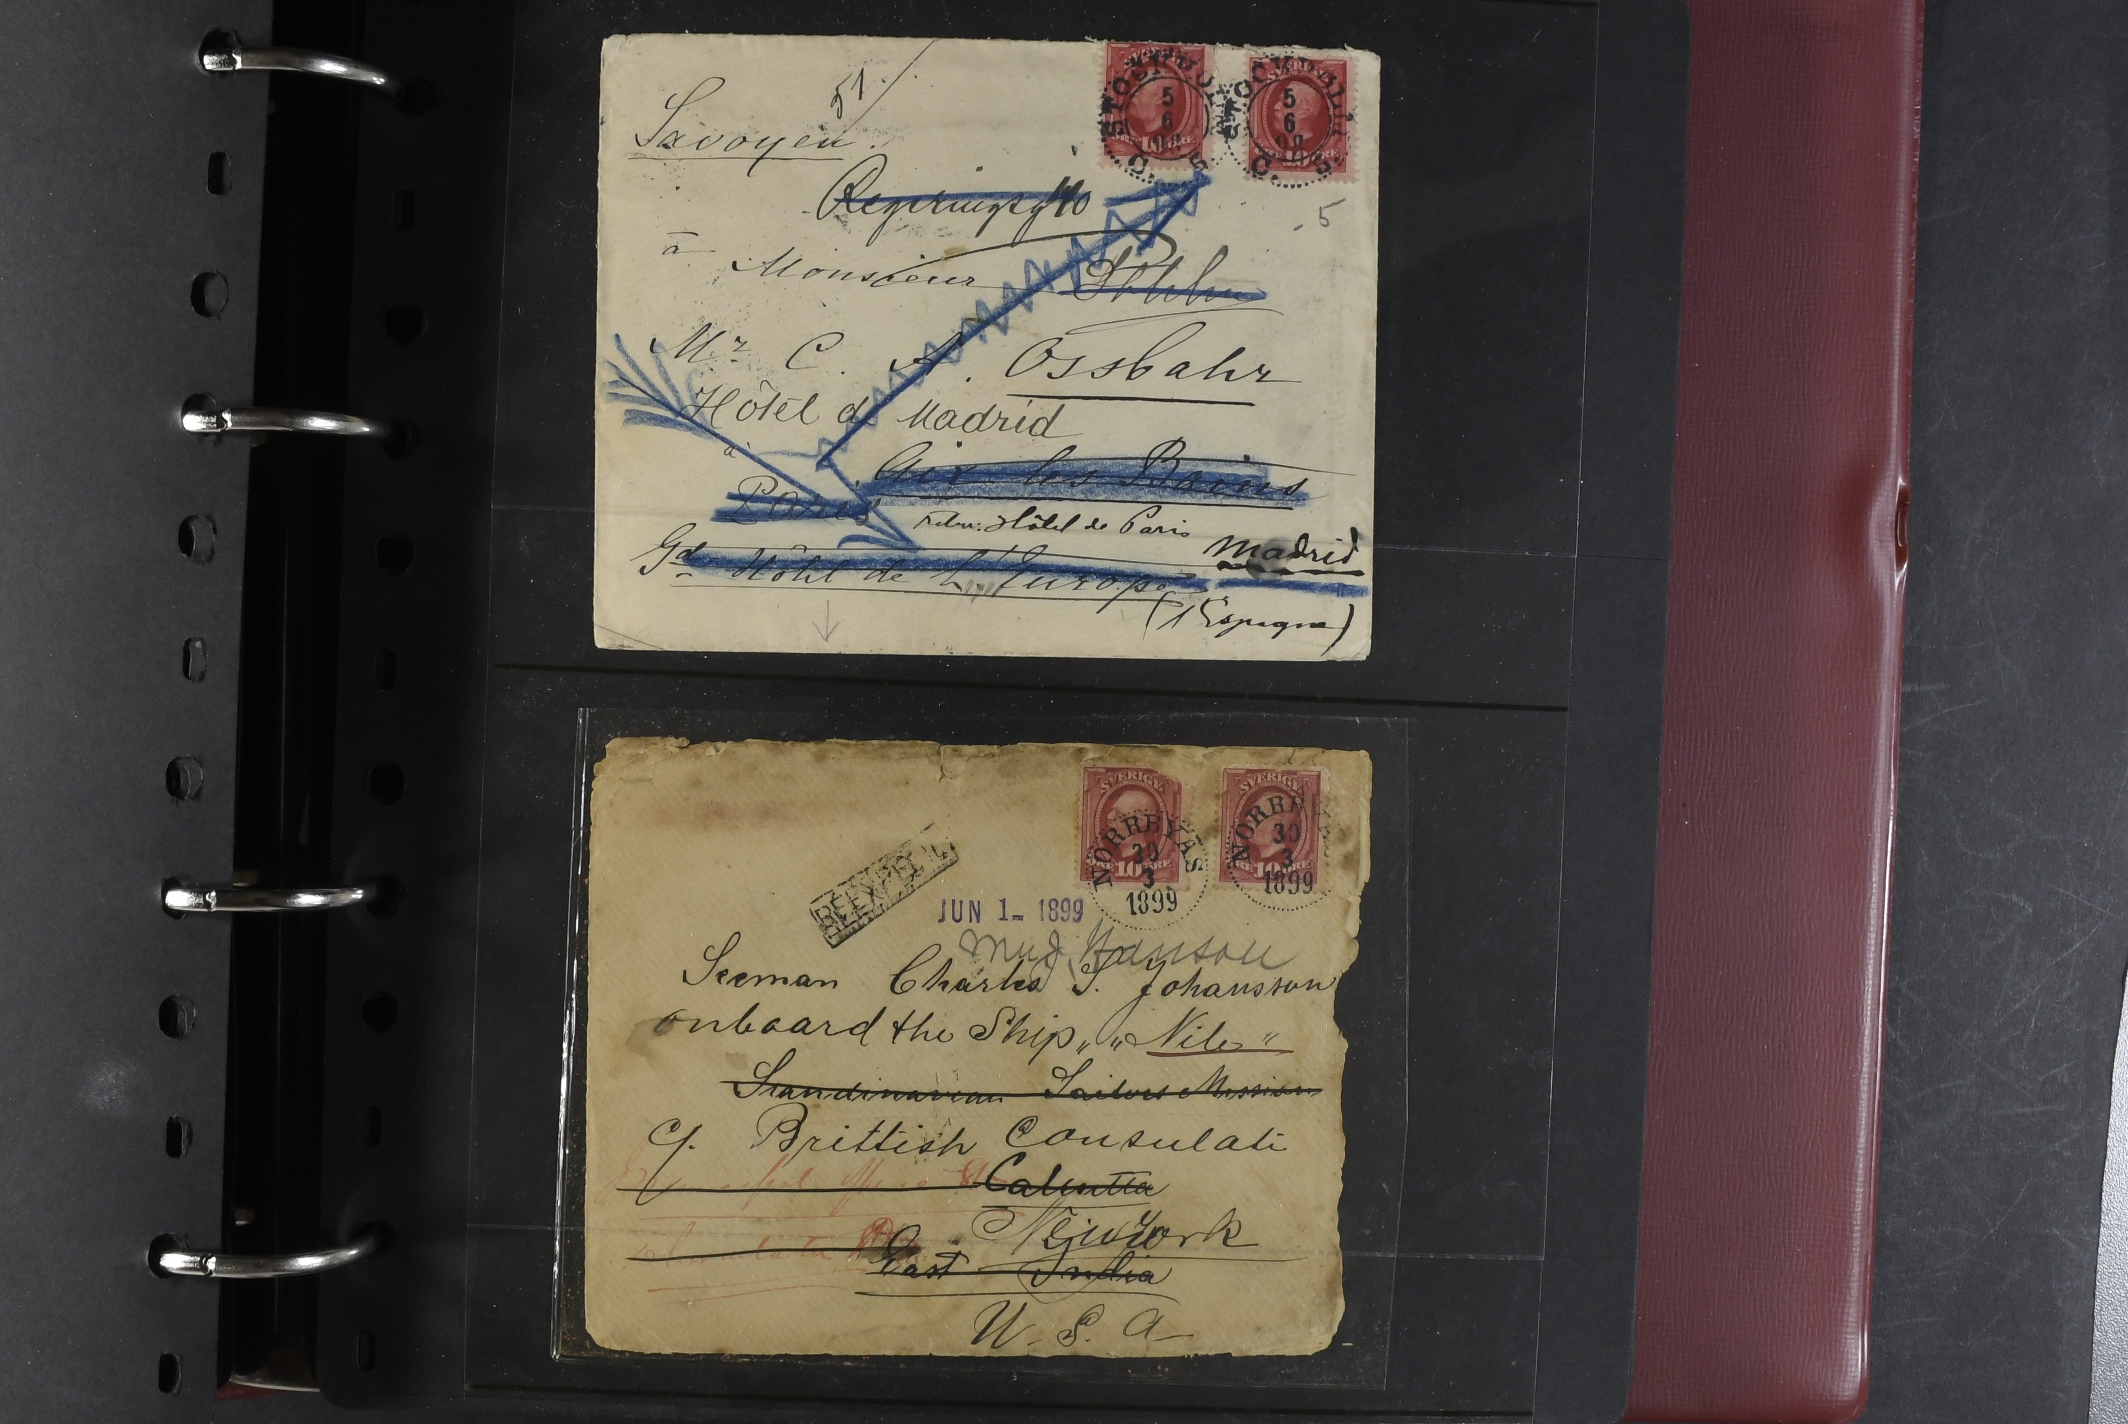 51
Savoyen.
STOCKHOLM
5
6
98
STOCKHOLM
5
6
98
Regeringsg 40
5
à Monsieur
Sthlm
Mr C. A. Ossbahr
Hôtel de Madrid
à
Aix les Bains
Paris
Hôtel de Paris
Madrid
Gd Hôtel de l'Europe
(l'Espagne)
SVERIGE
10 ÖRE
NORRBYÅS
30
3
1899
SVERIGE
10 ÖRE
NORRBYÅS
30
3
1899
REEXPED
JUN 1- 1899
Hanson
Seeman Charles S. Johansson
onboard the Ship „ „Nile"
Skandinavean Sailors Mission
c/. Brittish Consulati
Calcutta
New York
East India
U. S. A